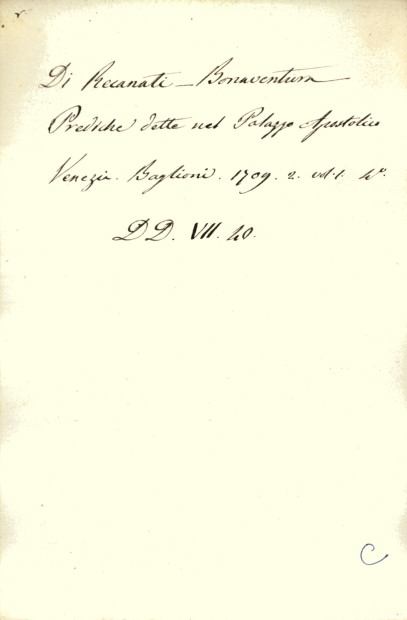 Di Recanati - Bonaventura
Prediche dette nel Palazzo Apostolico
Venezia. Baglioni. 1709. 2. vol. 4°.
DD. VII. 40.
C